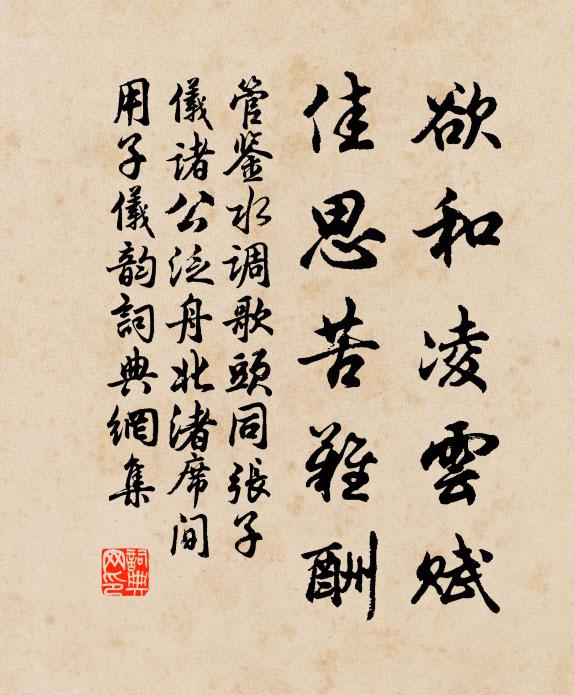 欲和凌雲赋
佳思苦難酬
管鉴水调歌頭同張子
儀諸公泛舟北渚席间
用子儀韵詞典網集
詞典
网印